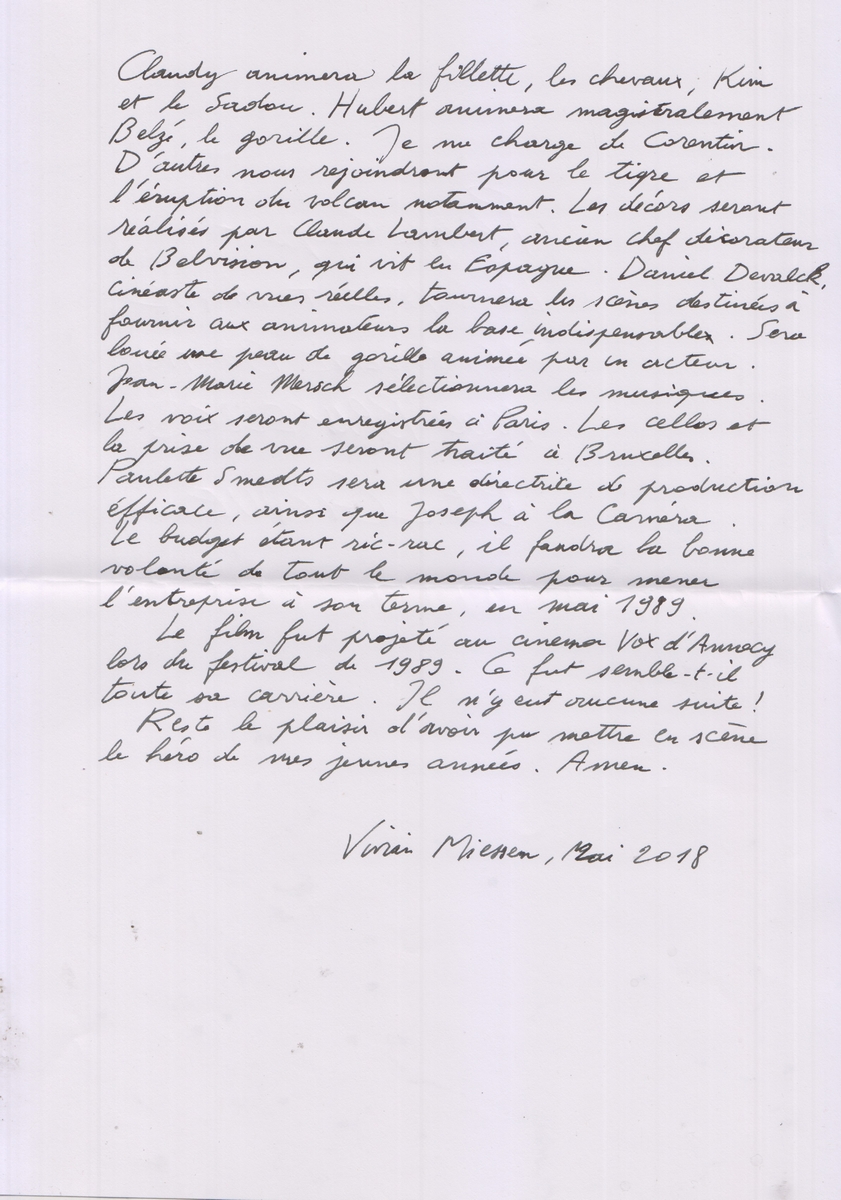 Claudy animera la fillette, les chevaux, Kim
et le Sadou. Hubert animera magistralement
Belzé, le gorille. Je me charge de Corentin.
D'autres nous rejoindront pour le tigre et
l'éruption du volcan notamment. Les décors seront
réalisés par Claude Lambert, ancien chef décorateur
de Belvision, qui vit en Espagne. Daniel Devalck,
cinéaste de vues réelles, tournera les scènes destinées à
fournir aux animateurs la base indispensable. Sera
louée une peau de gorille animée par un acteur.
Jean-Marie Mersch sélectionnera les musiques.
Les voix seront enregistrées à Paris. Les cellos et
la prise de vue seront traité à Bruxelles.
Paulette Smedts sera une directrite de production
éfficace, ainsi que Joseph à la Caméra.
Le budget étant ric-rac, il faudra la bonne
volonté de tout le monde pour mener
l'entreprise à son terme, en mai 1989.
Le film fut projeté au cinema Vox d'Annecy
lors du festival de 1989. Ce fut semble-t-il
toute sa carrière. Il n'y eut aucune suite!
Reste le plaisir d'avoir pu mettre en scène
le héro de mes jeunes années. Amen.
Vivian Miessen, Mai 2018